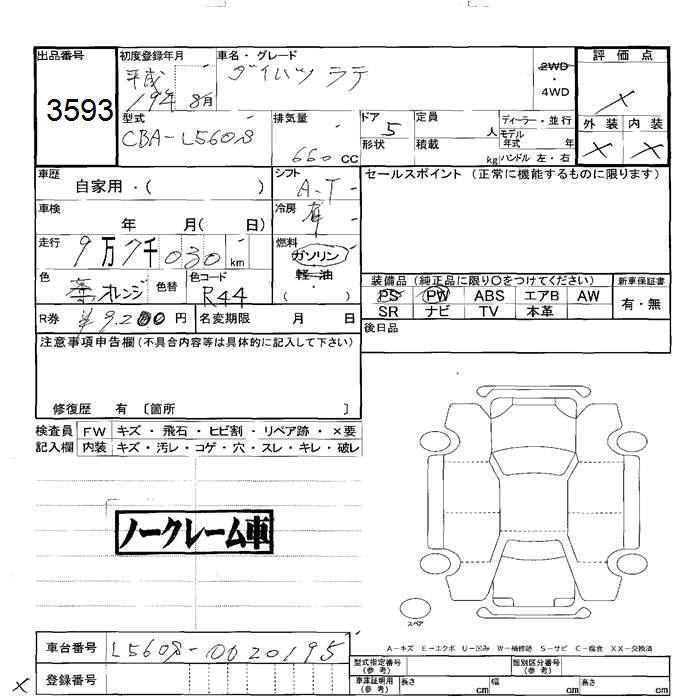 出品番号
3593
初度登録年月
平成
19年 8月
車名・グレード
ダイハツ ラテ
2WD
・
4WD
評価点
外装 内装
型式
CBA-L560S
排気量
660 CC
ドア 5
形状
定員
人
積載
kg
ディーラー・並行
モデル年式 年
ハンドル 左・右
車歴
自家用・( )
シフト
A-T
セールスポイント (正常に機能するものに限ります)
車検
年 月( 日)
冷房
走行
9万7千030km
燃料
ガソリン
軽・油
( )
色
オレンジ
色替
色コード
R44
装備品 (純正品に限り〇をつけてください)
PS PW ABS エアB AW
SR ナビ TV 本革
新車保証書
有・無
R券 ¥9,200円
名変期限 月 日
後日品
注意事項申告欄(不具合内容等は具体的に記入して下さい)
修復歴 有〔箇所 〕
検査員記入欄
FW キズ・飛石・ヒビ割・リペア跡・×要
内装 キズ・汚レ・コゲ・穴・スレ・キレ・破レ
ノークレーム車
スペア
A-キズ E-エクボ U-凹み W-補修跡 S-サビ C-腐食 XX-交換済
車台番号 L560S-0020195
登録番号
型式指定番号(参考)
類別区分番号(参考)
車庫証明用(参考) 長さ cm 幅 cm 高さ cm